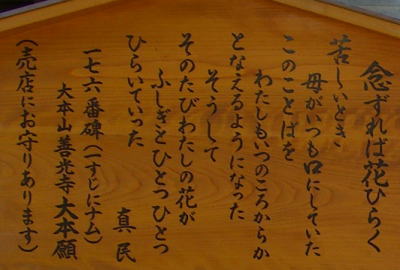 念ずれば花ひらく
苦しいとき
母がいつも口にしていた
このことばを
わたしもいつのころからか
となえるようになった
そうして
そのたびわたしの花が
ふしぎとひとつひとつ
ひらいていった
真民
一七六番碑(一すじにナム)
大本山善光寺大本願
(売店にお守りあります)